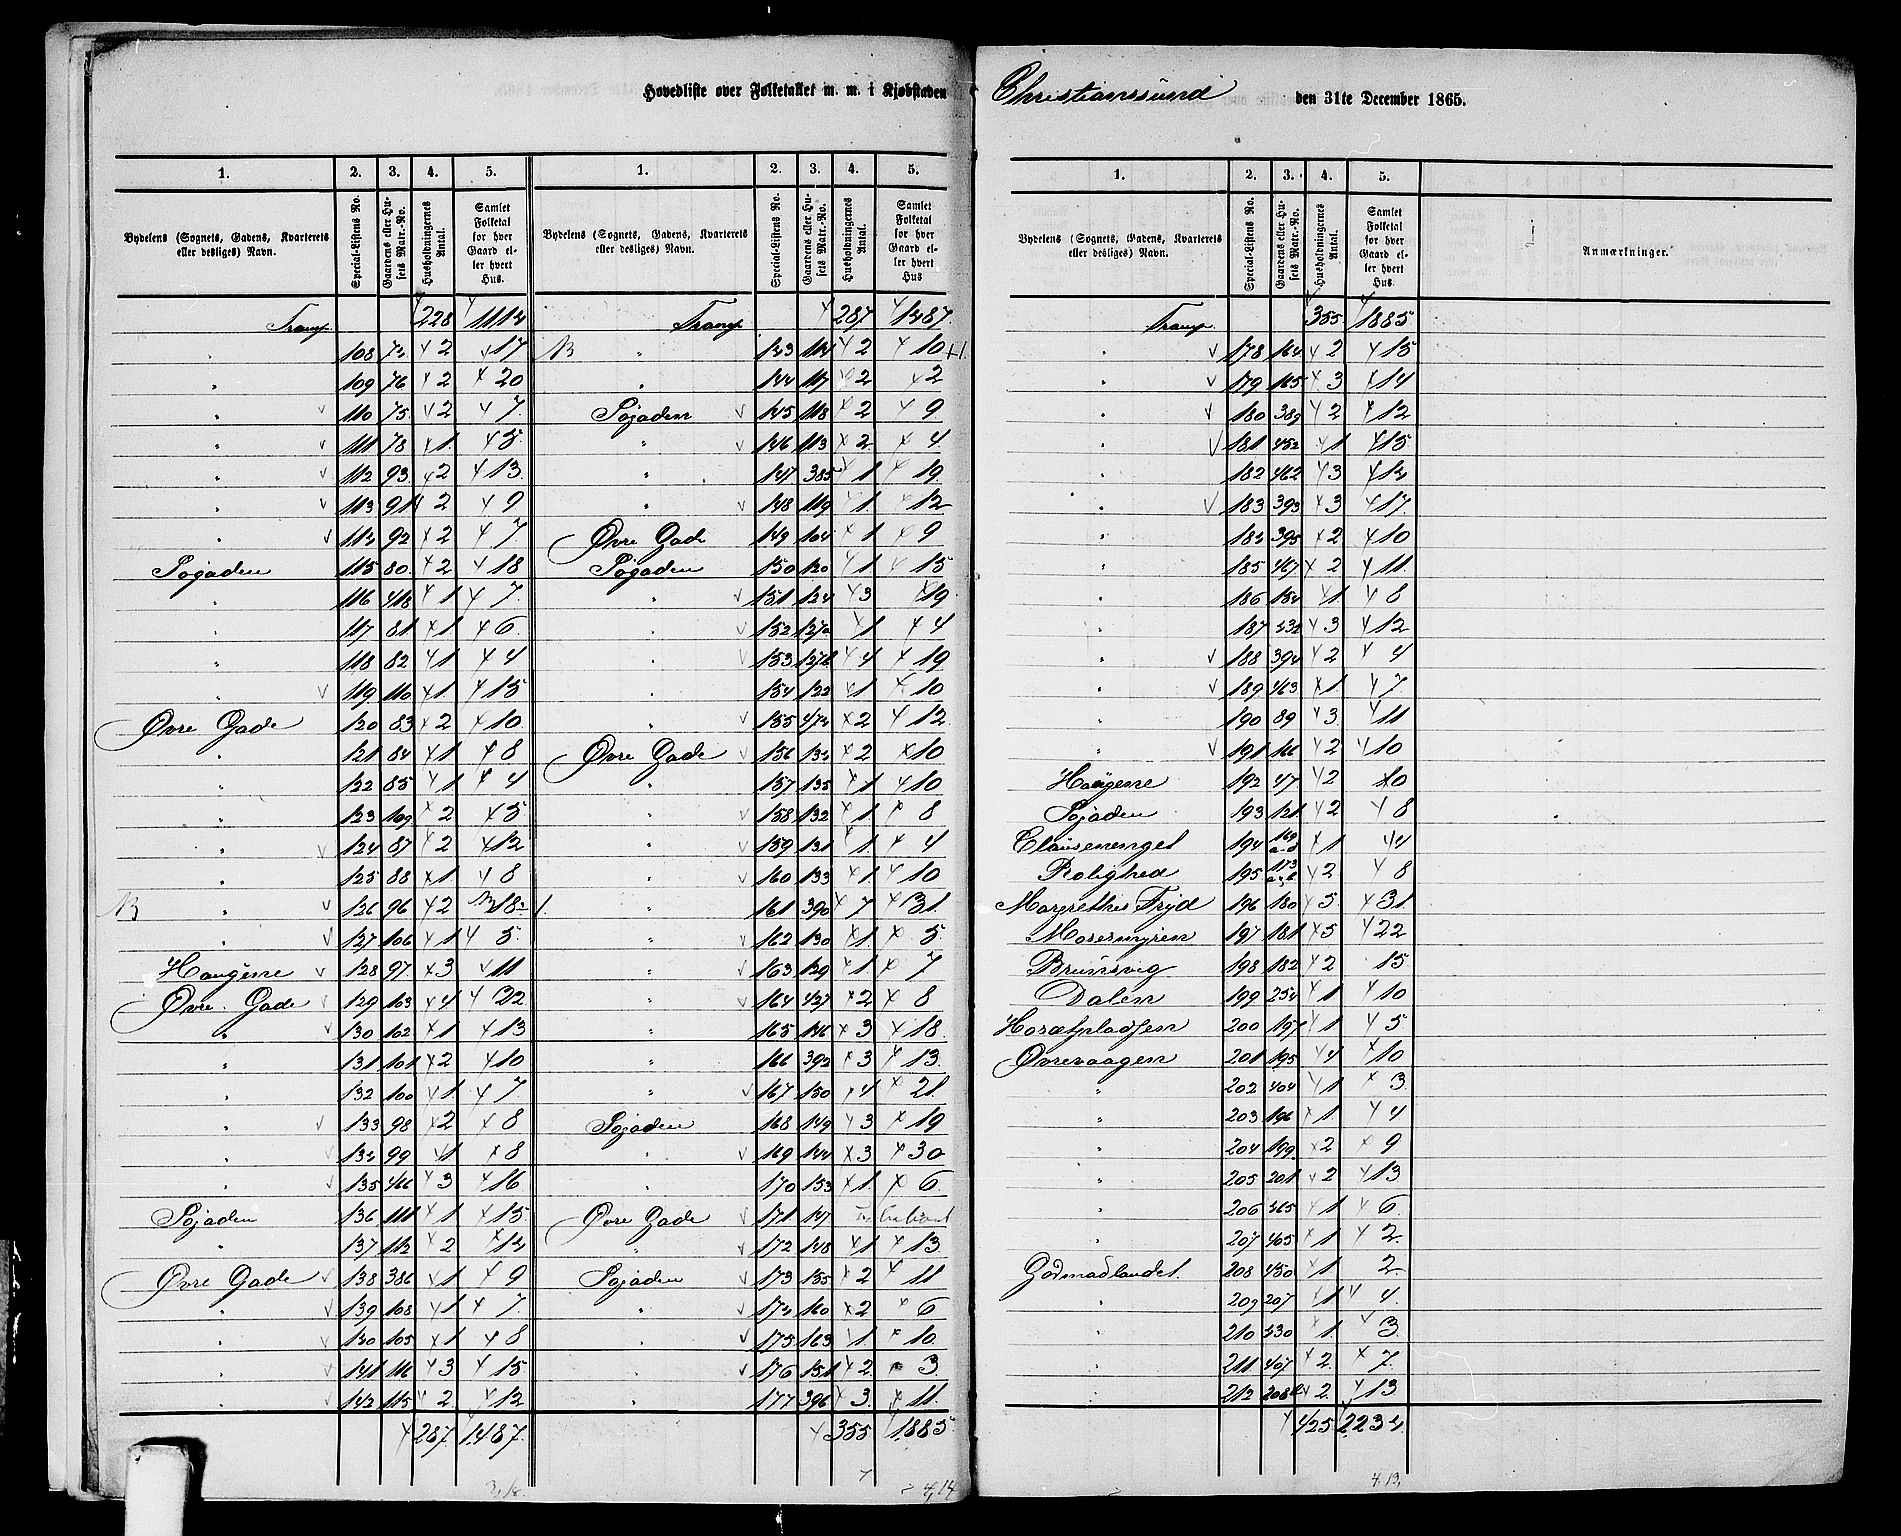 Hovedliste over Folketallet m. m. i Kjøbstaden Christianssund den 31te December 1865.
1. 2. 3. 4. 5. 1. 2. 3. 4. 5.
Bydelens (Sognets, Gadens, Kvarterets eller desliges) Navn. Special-Listens No. Gaardens eller Husets Matr.-No. Husholdningernes Antal. Samlet Folketal for hver Gaard eller hvert Hus.
Bydelens (Sognets, Gadens, Kvarterets eller desliges) Navn. Special-Listens No. Gaardens eller Husets Matr.-No. Husholdningernes Antal. Samlet Folketal for hver Gaard eller hvert Hus
Transp. 228 1114
" 108 74 2 17
" 109 76 2 20
" 110 75 2 7
" 111 78 1 5
" 112 93 2 13
" 113 91 2 9
" 114 92 2 7
Søgaden 115 80 2 18
" 116 418 1 7
" 117 81 1 6
" 118 82 1 4
" 119 110 1 15
Øvre Gade 120 83 2 10
" 121 84 1 8
" 122 85 1 4
" 123 109 2 5
" 124 87 2 12
" 125 88 1 8
" 126 96 2 18
" 127 106 1 5
Haugene 128 97 3 11
Øvre Gade 129 103 4 22
" 130 102 1 13
" 131 101 2 10
" 132 100 1 7
" 133 98 2 8
" 134 99 1 8
" 135 466 3 16
Søgaden 136 111 1 15
" 137 112 2 14
Øvre Gade 138 386 1 9
" 139 108 1 7
" 140 105 1 8
" 141 116 3 15
" 142 115 2 12
287 1487
Transp 287 1487
" 143 114 2 10 +1
" 144 117 2 2
Søgaden 145 118 2 9
" 146 113 2 4
" 147 385 1 19
" 148 119 1 12
Øvre Gade 149 104 1 9
Søgaden 150 120 1 15
" 151 124 3 19
" 152 127a 1 4
" 153 127b 4 19
" 154 122 1 10
" 155 474 2 12
Øvre Gade 156 134 2 10
" 157 135 1 10
" 158 132 1 8
" 159 131 1 4
" 160 133 1 10
" 161 390 7 31
" 162 130 1 5
" 163 129 1 7
" 164 427 2 8
" 165 146 3 18
" 166 392 3 13
" 167 150 4 21
Søgaden 168 149 3 19
" 169 144 3 30
" 170 153 1 6
Øvre Gade 171 147
" 172 148 1 13
Søgaden 173 155 2 11
" 174 160 2 6
" 175 163 1 10
" 176 151 2 3
" 177 396 3 11
355 1885
4,14
1. 2. 3. 4. 5.
Bydelens (Sognets, Gadens, Kvarterets eller desliges) Navn. Special-Listens No. Gaardens eller Husets Matr.-No. Husholdningernes Antal. Samlet Folketal for hver Gaard eller hvert Hus. Anmærkninger.
Transp. 355 1885
" 178 164 2 15
" 179 165 3 14
" 180 389 2 12
" 181 452 1 15
" 182 462 3 14
" 183 393 3 17
" 184 395 2 10
" 185 467 2 11
" 186 154 1 8
" 187 432 3 12
" 188 394 2 4
" 189 463 1 7
" 190 89 3 11
" 191 166 2 10
Haugene 192 47 2 10
Søgaden 193 121 2 8
Clausenenget 194 169 a-d 1 4
Rolighed 195 173 a,b 2 8
Margrethes Fryd 196 180 5 31
Mosesmyren 197 181 5 22
Brunsvig 198 182 2 15
Dalen 199 254 1 10
200 197 1 5
Øvrevaagen 201 195 4 10
" 202 404 1 3
" 203 196 1 4
" 204 199 2 9
" 205 201 2 13
" 206 265 1 6
" 207 465 1 2
Godmadlandet 208 450 1 2
" 209 207 1 4
" 210 430 1 3
" 211 407 2 7
" 212 208 2 13
425 2234
4.13